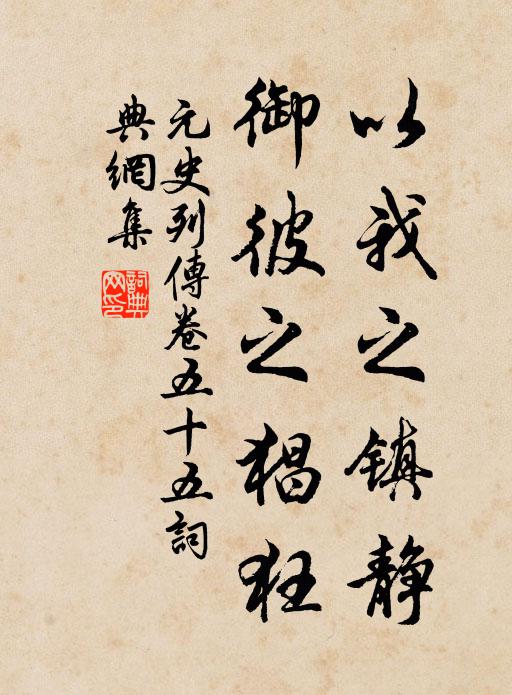 以我之镇静
御彼之猖狂
元史列傳卷五十五詞
典網集
詞典网印